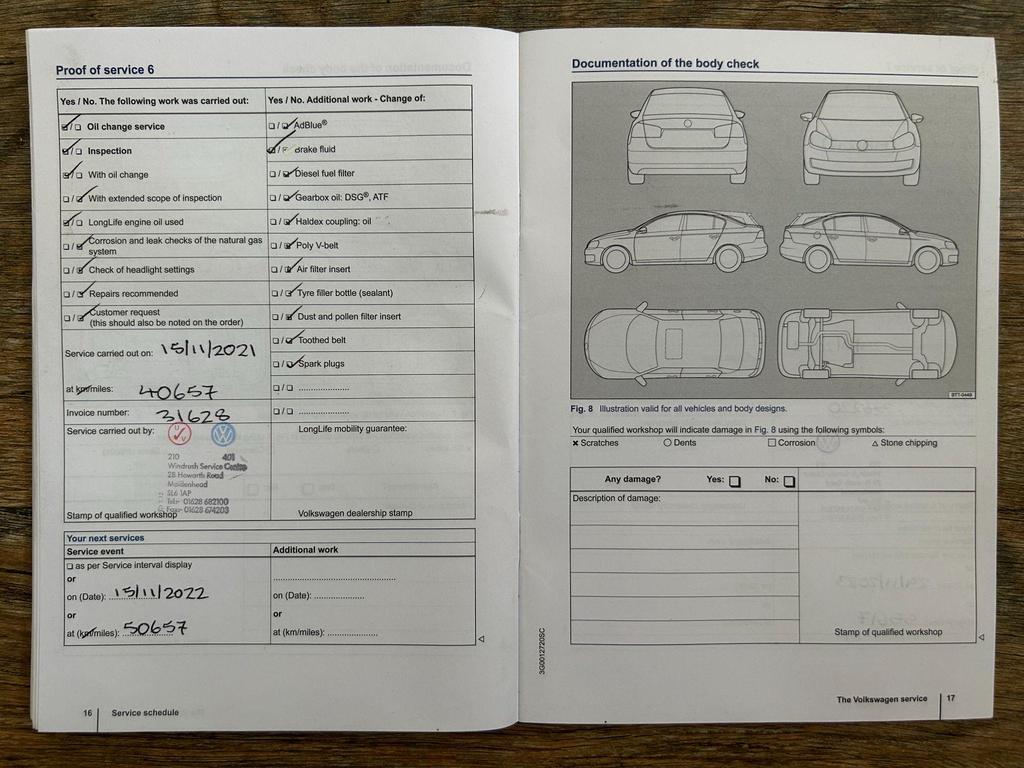 Proof of service 6
Yes / No. The following work was carried out:
Oil change service
Inspection
With oil change
With extended scope of inspection
LongLife engine oil used
Corrosion and leak checks of the natural gas
system
Check of headlight settings
Repairs recommended
Customer request
(this should also be noted on the order)
Service carried out on: 15/11/2021
at km/miles: 40657
Invoice number: 31628
Service carried out by:
210 401
Windrush Service Centre
28 Howarth Road
Maidenhead
SL6 1AP
Tel:- 01628 682100
Fax:- 01628 674203
Stamp of qualified workshop
Yes / No. Additional work - Change of:
AdBlue®
Brake fluid
Diesel fuel filter
Gearbox oil: DSG®, ATF
Haldex coupling: oil
Poly V-belt
Air filter insert
Tyre filler bottle (sealant)
Dust and pollen filter insert
Toothed belt
Spark plugs
LongLife mobility guarantee:
Volkswagen dealership stamp
Your next services
Service event
as per Service interval display
or
on (Date): 15/11/2022
or
at (km/miles): 50657
Additional work
on (Date):
or
at (km/miles):
16 Service schedule
3G0012720SC
Documentation of the body check
BTT-0449
Fig. 8 Illustration valid for all vehicles and body designs.
Your qualified workshop will indicate damage in Fig. 8 using the following symbols:
× Scratches ○ Dents □ Corrosion △ Stone chipping
Any damage? Yes: □ No: □
Description of damage:
Stamp of qualified workshop
The Volkswagen service 17